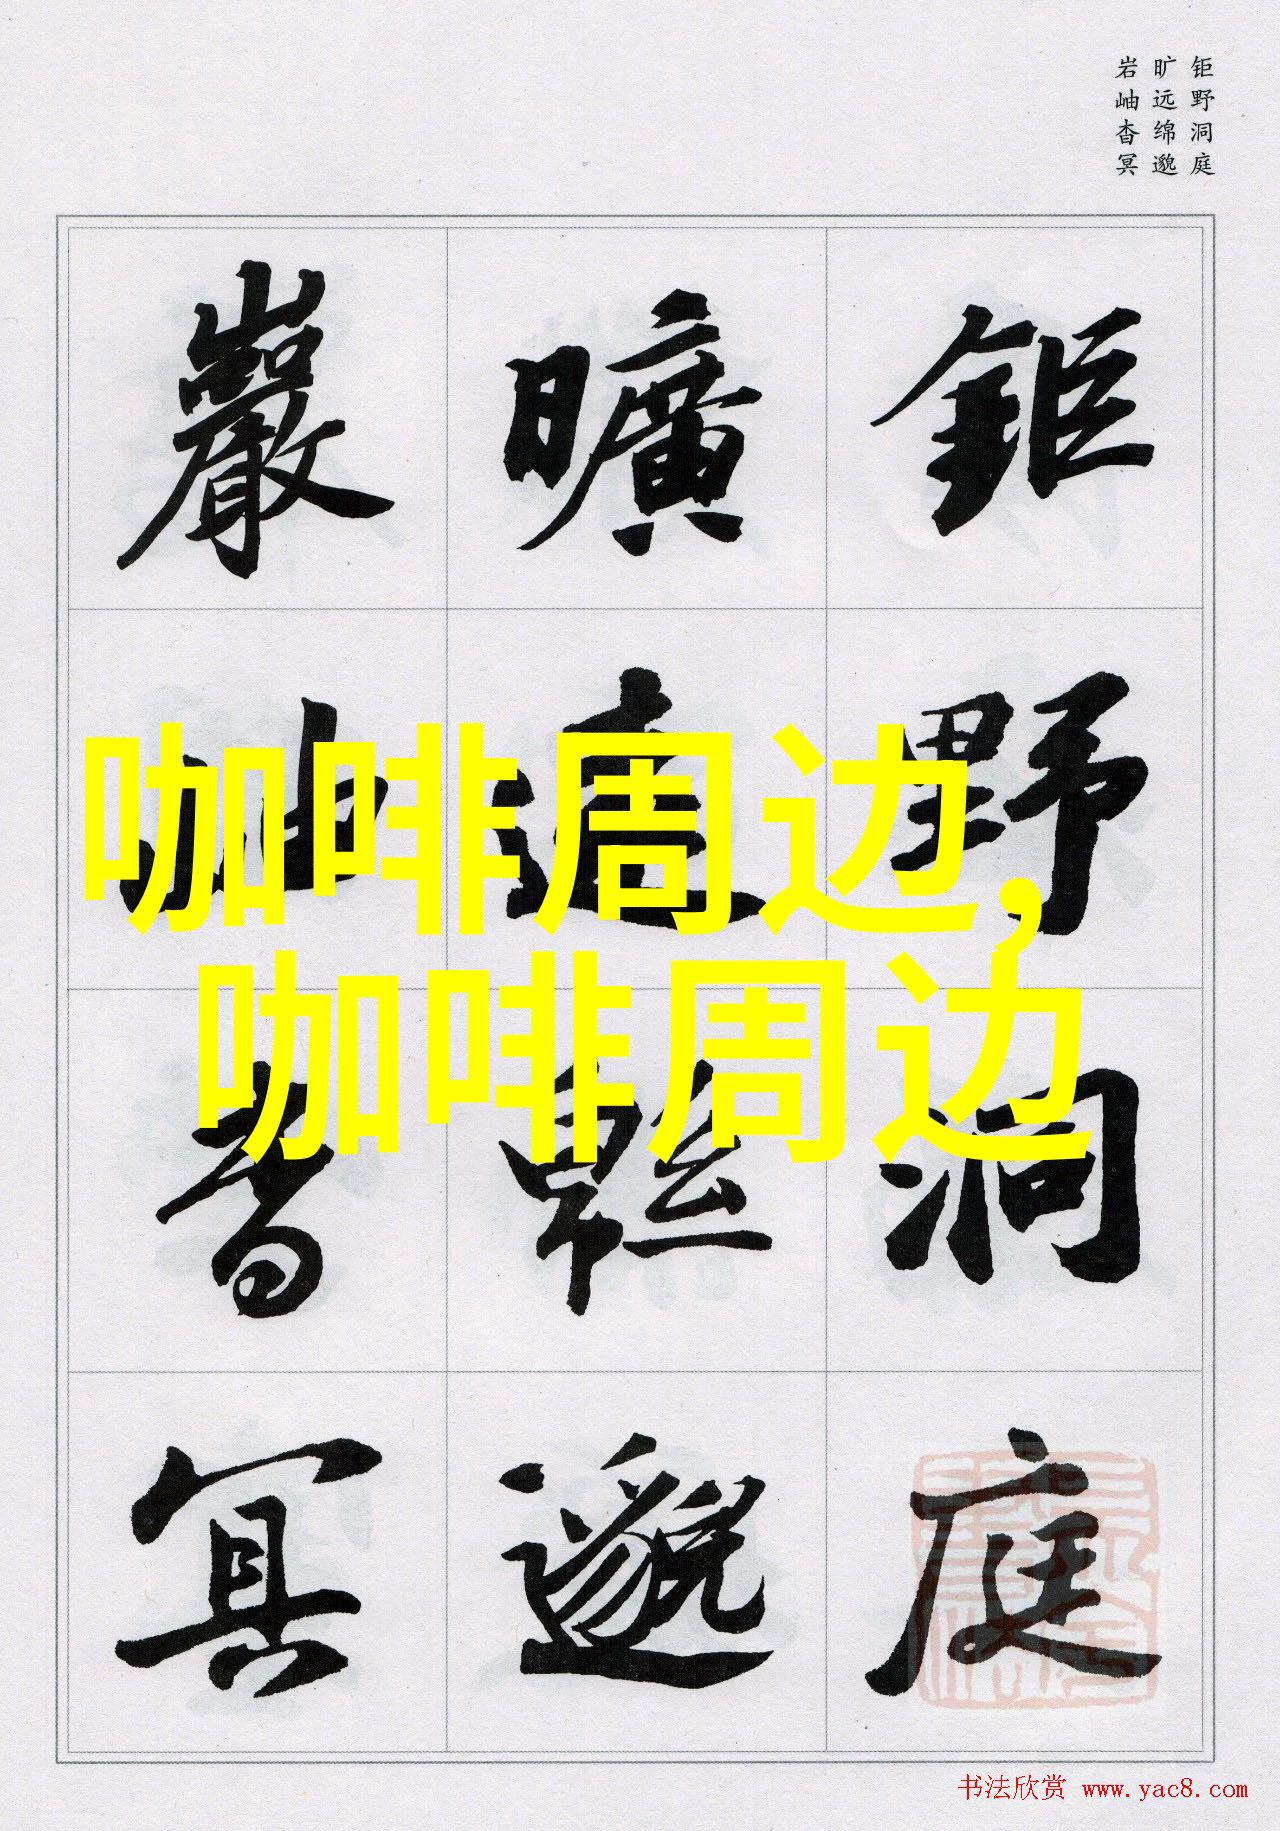 钜野洞庭
旷远绵邈
岩岫杳冥
鉅野洞庭
曠遠緜邈
巖岫杳冥
咖啡周边,
咖啡周边
书法欣赏 www.yac8.com